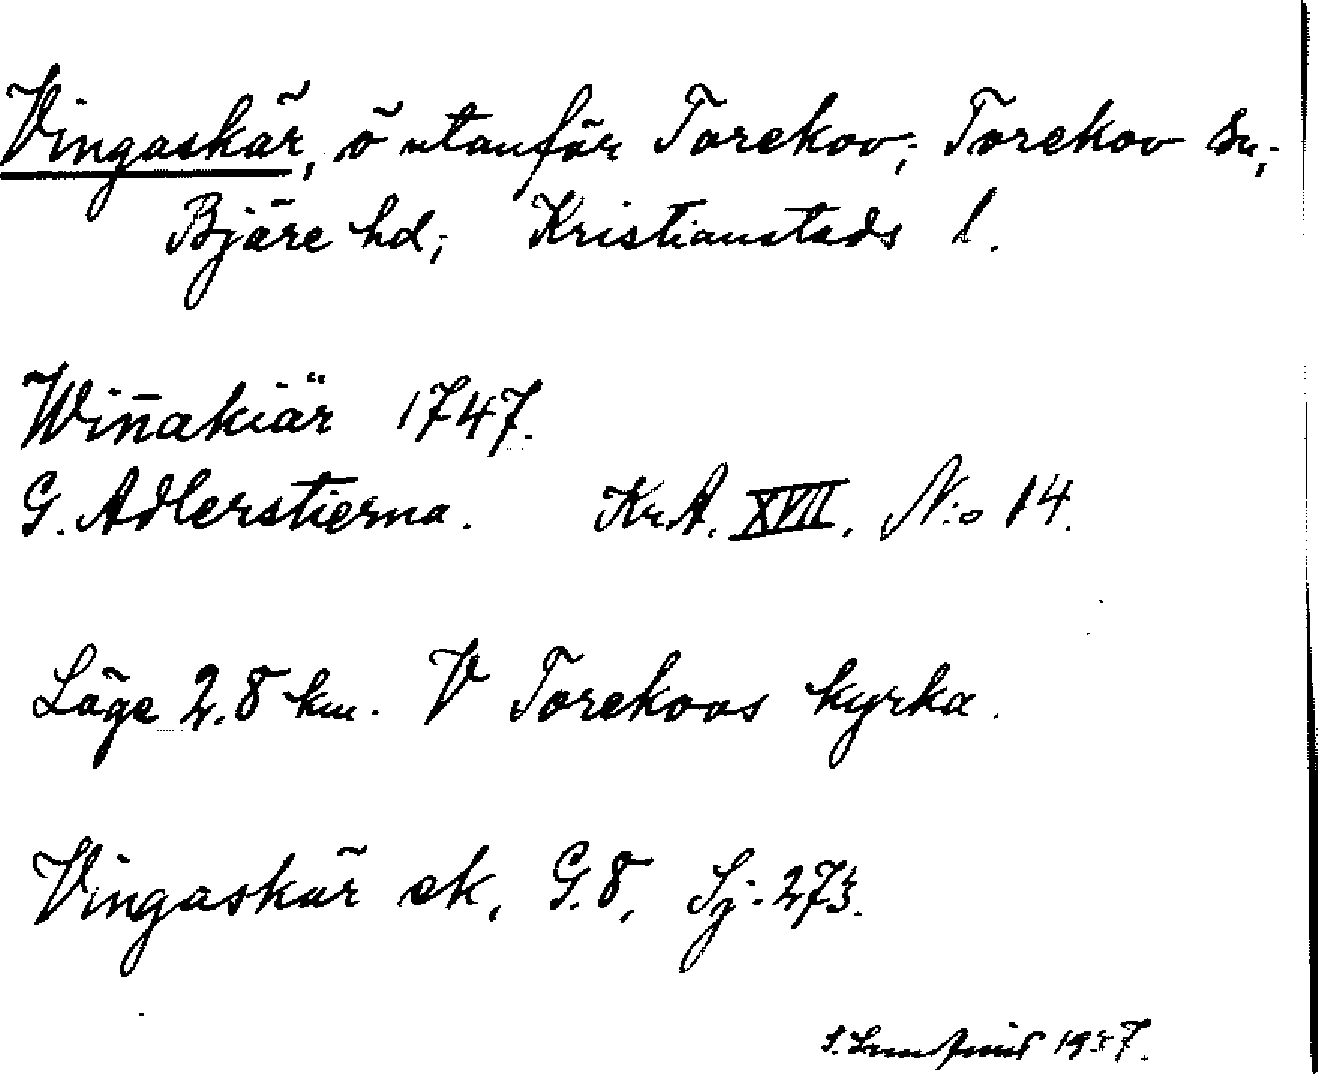 Vingaskär, ö utanför Torekov; Torekov sn;
Bjäre hd; Kristianstads l.
Win̄akiär 1747.
G. Adlerstierna. Kr.A. XVII. N:o 14.
Läge 2.8 km. V Torekovs kyrka.
Vingaskär ek. G.8, Sj. 273.
1937.